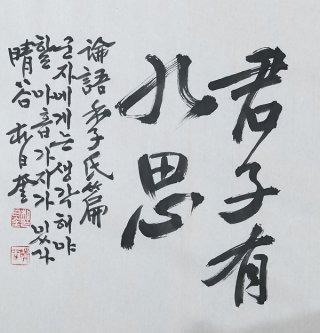 君子有
九思
論語 季氏篇
군자에게는 생각해야
할 아홉가지가 있다
晴谷